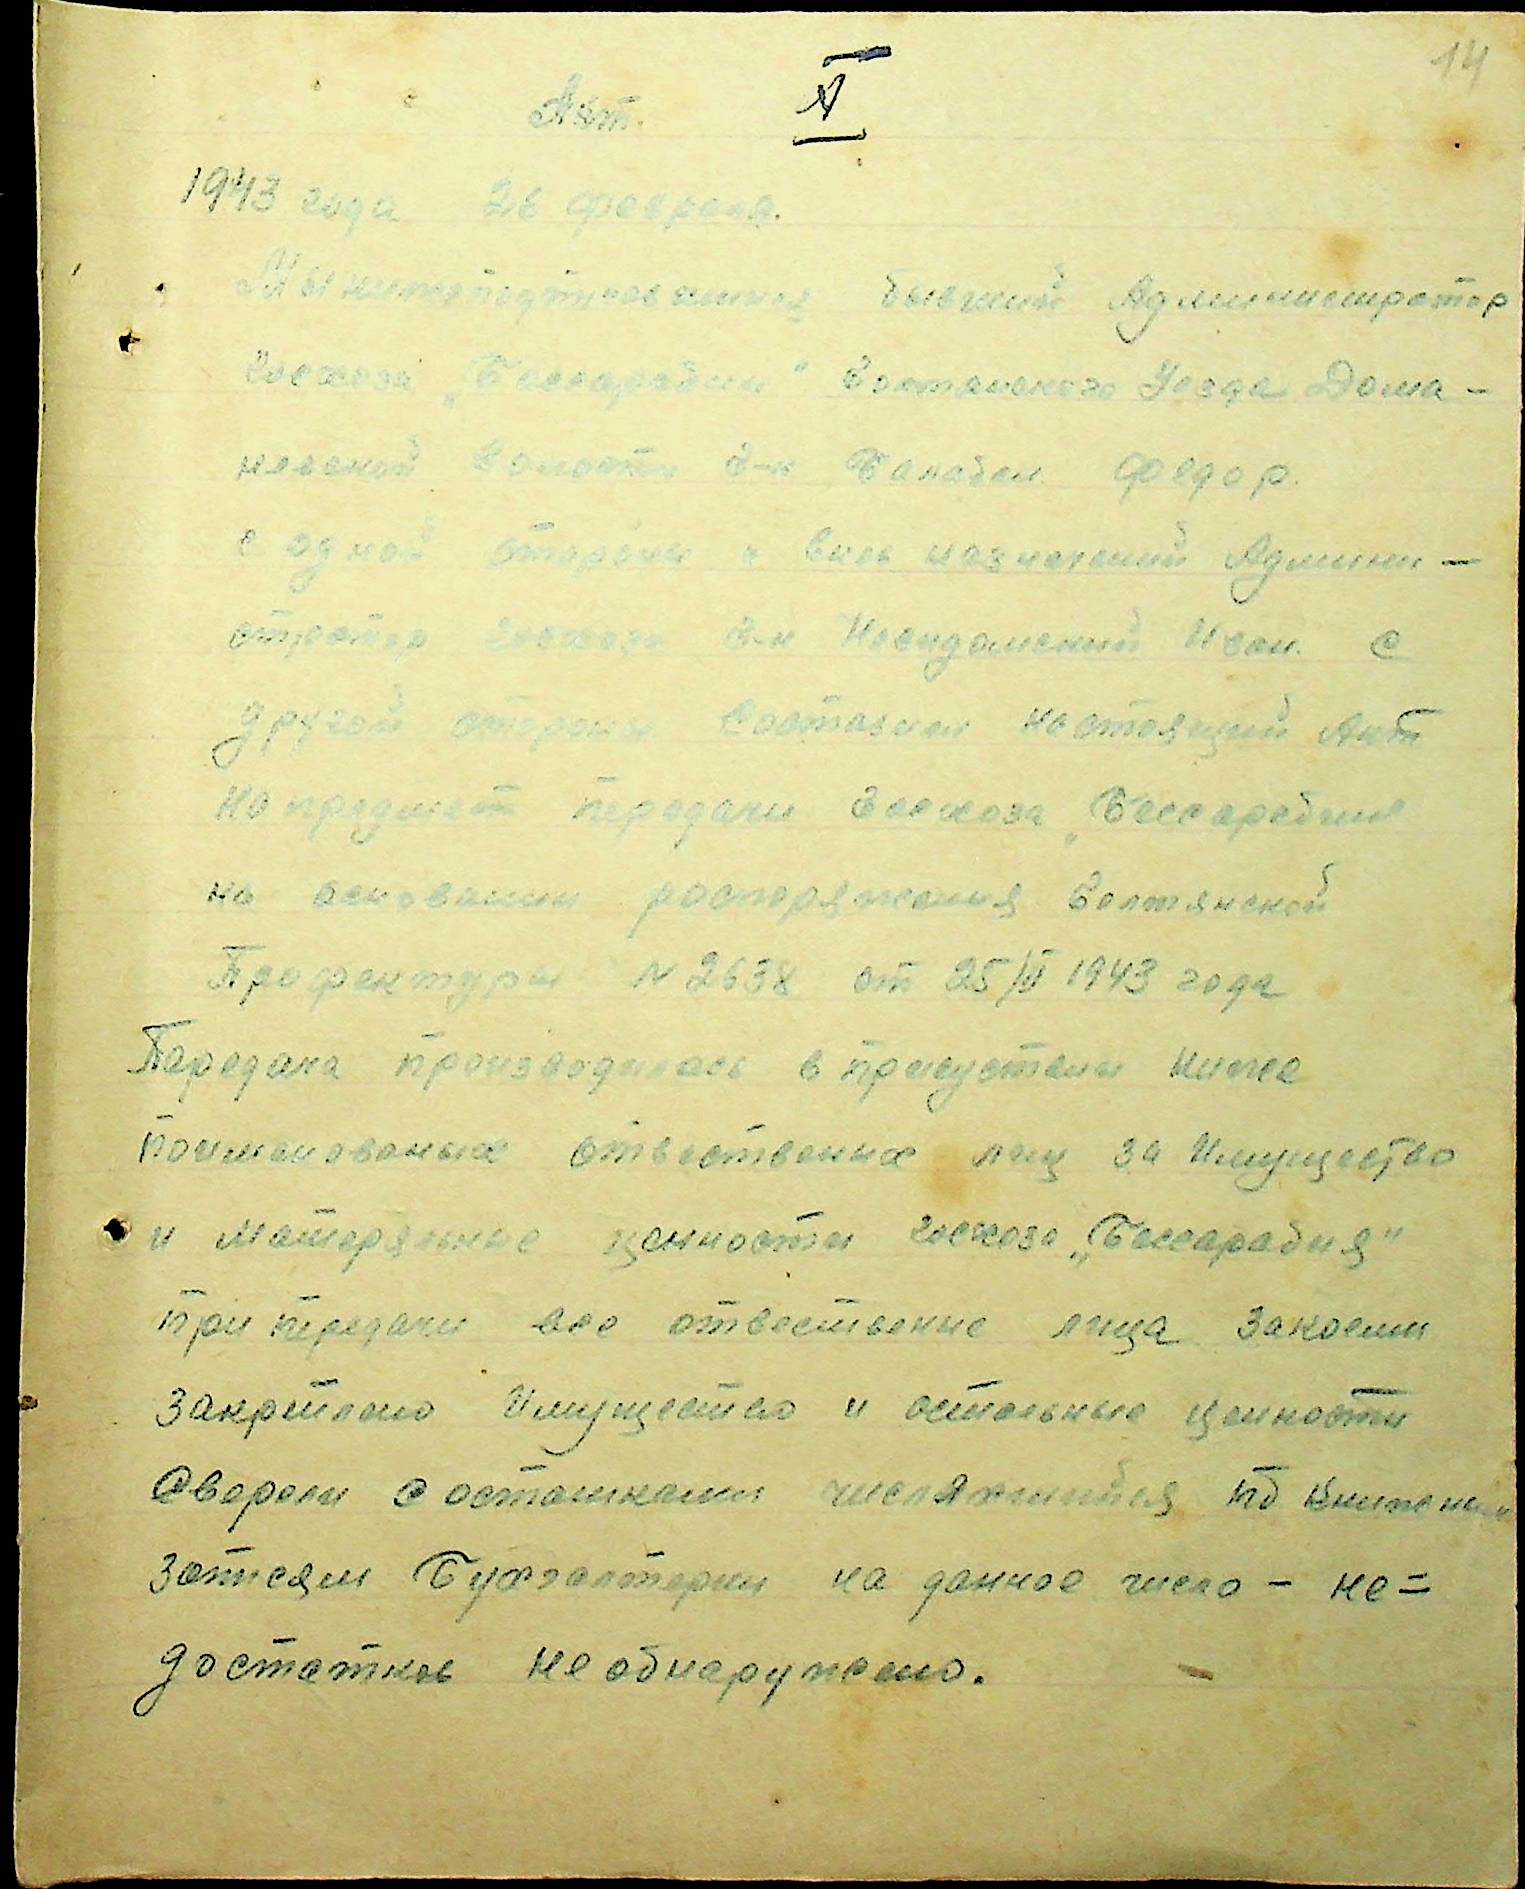 14
Акт.
1943 года 26 февраля.
Мы нижеподписавшиеся бывший Администратор
госхоза „Бессарабия" Голтянского Уезда Дома-
невской Волости г-н Балабан Федор.
с одной стороны и вновь назначений Админи-
стратор госхоза г-н Иван. с
другой стороны Составили настоящий Акт
На предмет передачи госхоза „Бессарабия
на основании распоряжения Голтянской
Префектуры N 2638 от 25/II 1943 года
Передача производилась в присуствии ниже
поименованых отвественых лиц за Имущество
и матерялные ценности госхоза „Бессарабия"
при передачи все отвественые лица за коеми
закреплено Имущество и остальные ценности
Сверели с остатками по книжным
записям Бухгалтерии на данное число - не=
достатков не обнаружено.